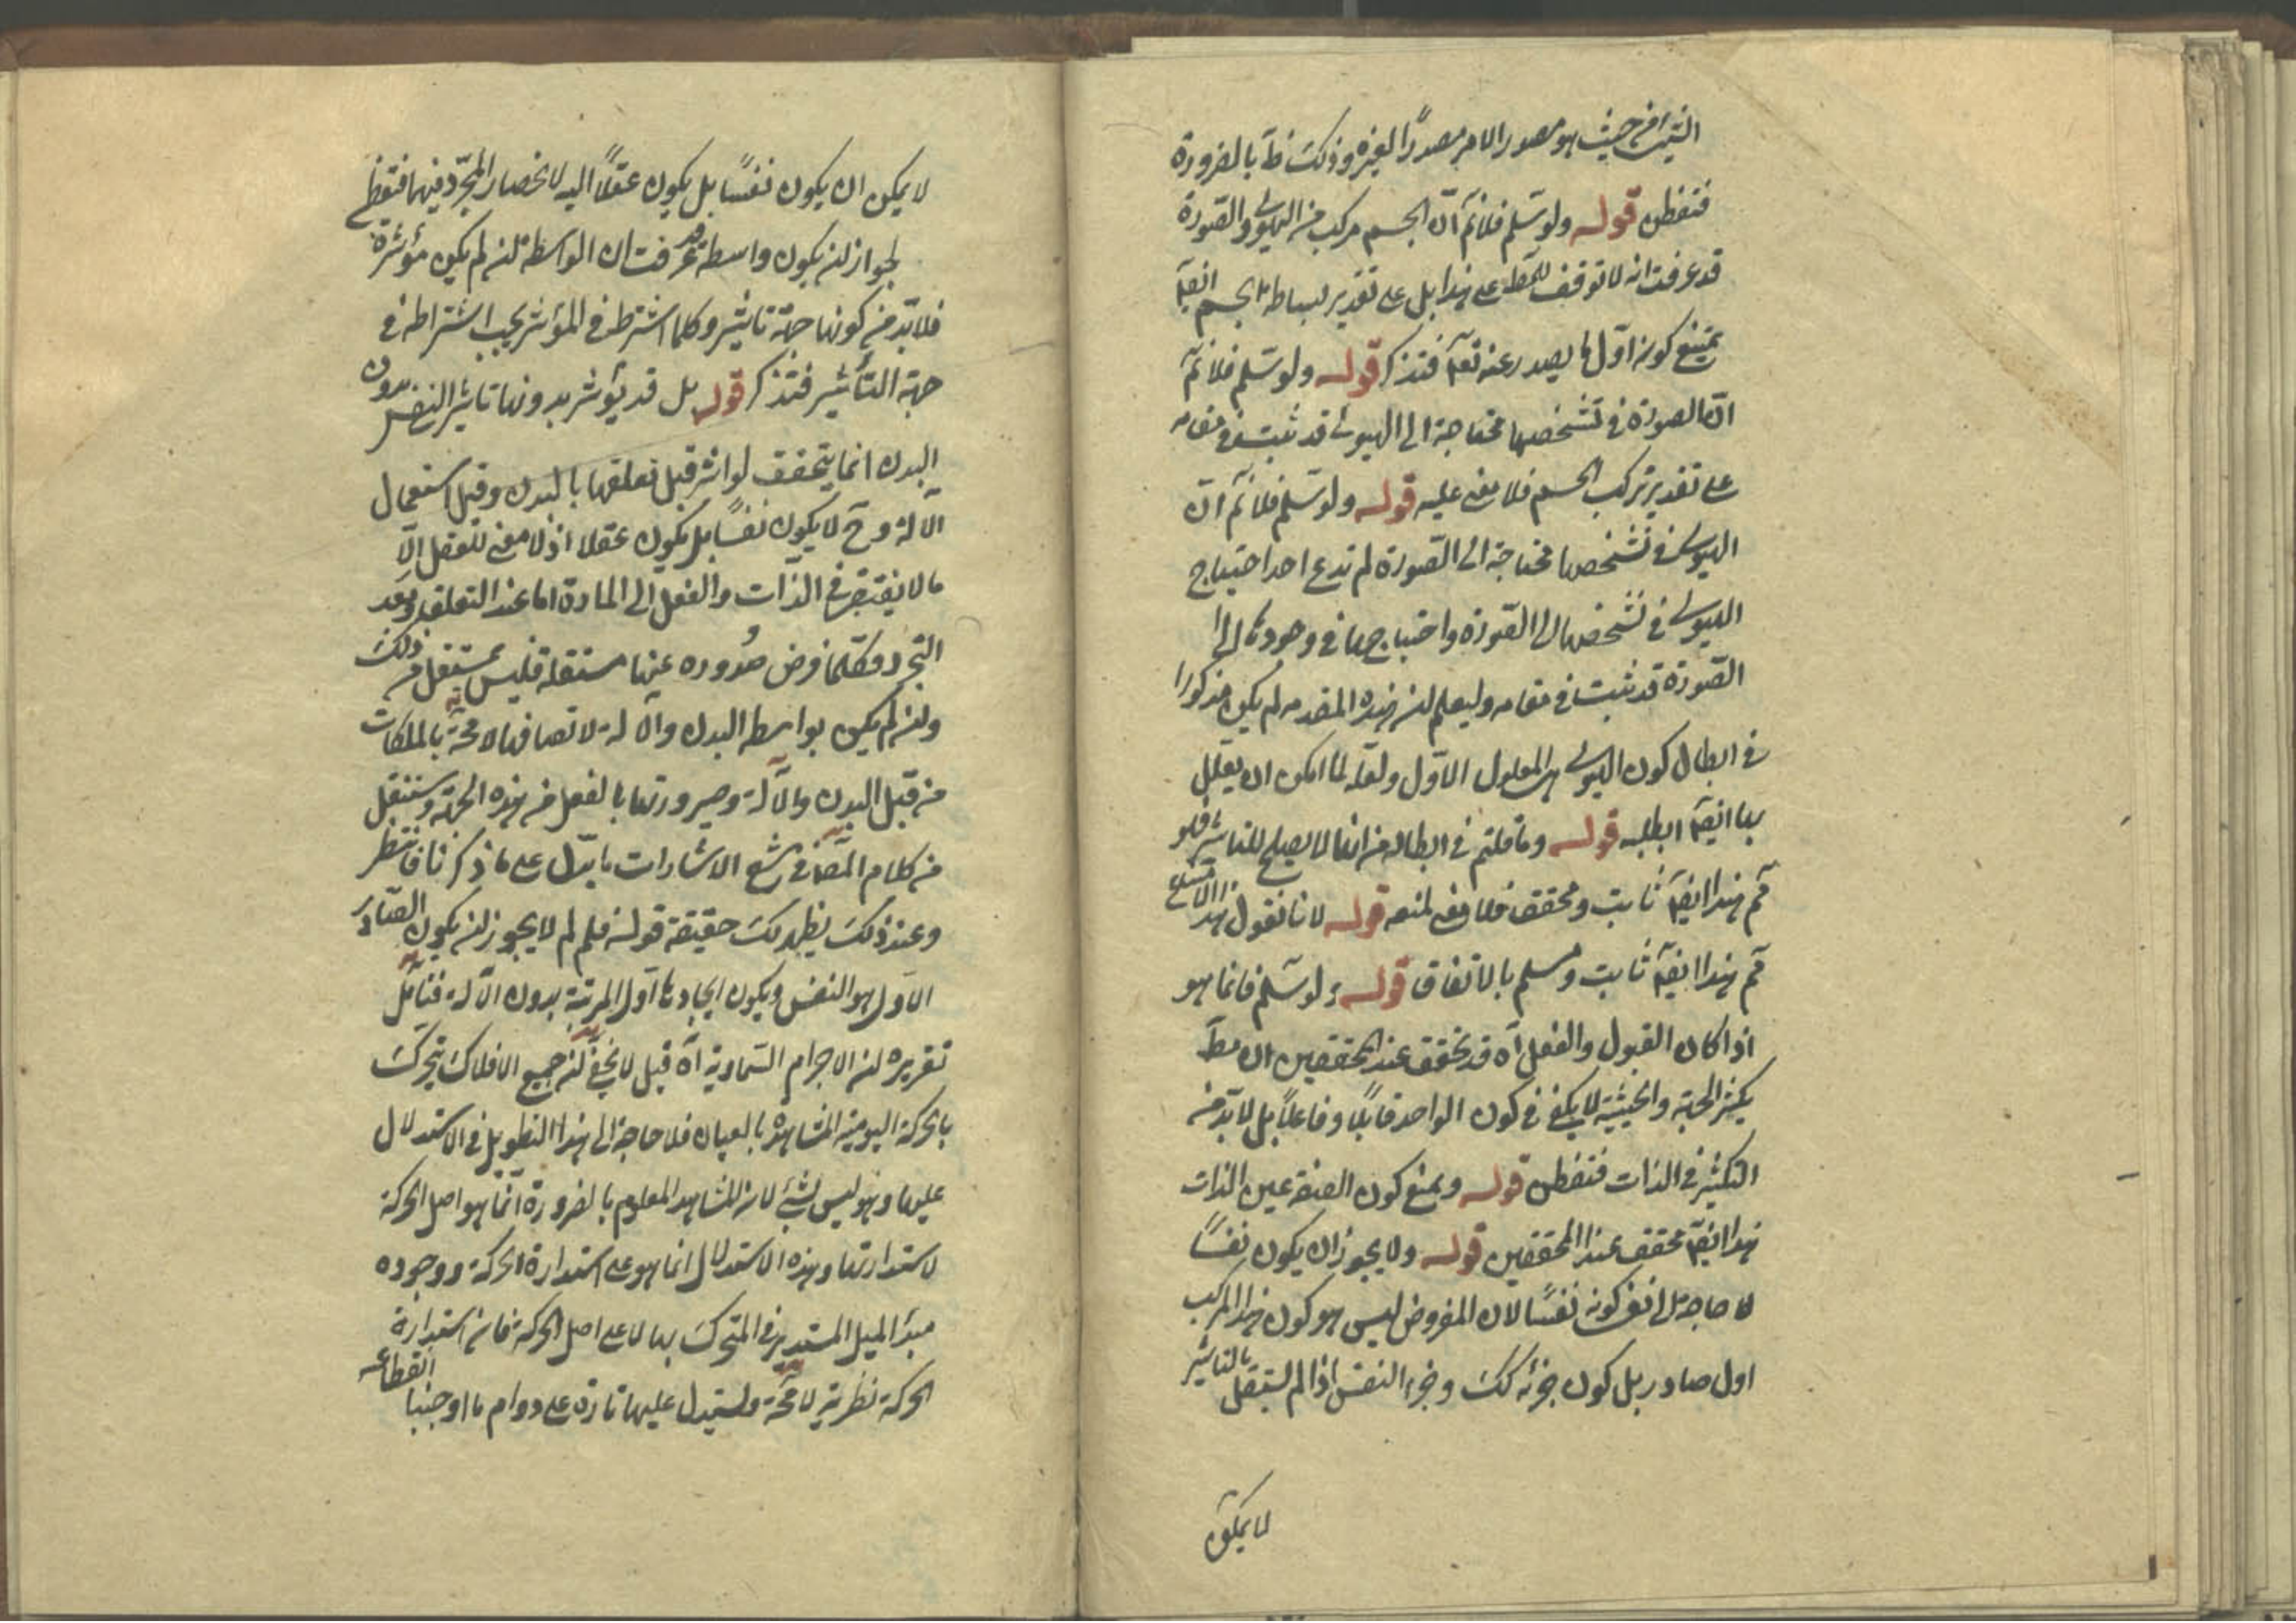 الشئ من حيث هو مصدر الامر مصدرًا لغيره وذلك ظ بالضرورة
فتفطن قوله ولو سلم فلا نم ان الجسم مركب من الهيولى والصورة
قد عرفت انه لا توقف للمط على هذا بل على تقدير بساطة الجسم ايضا
يمتنع كونه اول ما يصدر عنه تعه فتذكر قوله ولو سلم فلا نم
ان الصورة في تشخصها محتاجة الى الهيولى قد ثبت في مقامه
على تقدير تركب الجسم فلا منع عليه قوله ولو سلم فلا نم ان
الهيولى في تشخصها محتاجة الى الصورة لم تدع احد احتياج
الهيولى في تشخصها الى الصورة واحتياجها في وجودها الى
الصورة قد ثبت في مقامه وليعلم ان هذه المقدمه لم يكن مذكورا
في ابطال كون الهيولى هى المعلول الاول ولعله لما امكن ان يعلل
بها ايضا ابطله قوله وما قلتم في ابطاله من انها لا يصلح للتاثير فلو
تم هذا ايضا ثابت ومحقق فلا منع لمنعه قوله لانا نقول هذا الامتناع
تم هذا ايضا ثابت ومسلم بالاتفاق قوله ولو سلم فانما هو
اذا كان القبول والفعل اه قد تحقق عند المحققين ان مط
يكثر الجهة والحيثية لا يكفى في كون الواحد قابلًا وفاعلًا بل لابد من
التكثير في الذات فتفطن قوله ويمنع كون الصفة عين الذات
هذا ايضا محقق عند المحققين قوله ولا يجوز ان يكون نفسًا
لا حاجة الى نفى كونه نفسًا لان المفروض ليس هو كون هذا المركب
اول صادر بل كون جزئه كك وجزء النفس اذا لم يستقل بالتاثير
لا يمكن
لا يمكن ان يكون نفسًا بل يكون عقلًا اليه لانحصار المجرد فيهما فتفطن
لجواز ان يكون واسطة قد عرفت ان الواسطة ان لم يكن مؤثرة
فلابد من كونها جهة تاثير وكلما اشترط في المؤثر يجب اشتراطه في
جهة التأثير فتذكر قوله بل قد يؤثر بدونها تاثير النفس بدون
البدن انما يتحقق لو اثر قبل تعلقها بالبدن وقبل استعمال
الآلة وح لا يكون نفسًا بل يكون عقلا اذ لا معنى للعقل الا
ما لا يفتقر في الذات والفعل الى المادة اما عند التعلق وبعد
التجرد فكلما فرض صدوره عنها مستقلة فليس بمستقل في ذلك
وان لم يكن بواسطة البدن والآلة لاتصافها لا محة بالملكات
من قبل البدن والآلة وصيرورتها بالفعل من هذه الجهة وستنقل
من كلام المص في شرح الاشارات ما يدل على ما ذكرنا فانتظر
وعند ذلك يظهر لك حقيقة قوله فلم لم لا يجوز ان يكون الصادر
الاول هو النفس ويكون ايجادها اول المرتبة بدون الآلة فتأمل
تقريره ان الاجرام السماوية اه قيل لا يخفى ان جميع الافلاك يتحرك
بالحركة اليومية المشاهدة بالعيان فلا حاجة الى هذا التطويل في الاستدلال
عليها وهو ليس بشئ لان المشاهد المعلوم بالضرورة انما هو اصل الحركة
لا استدارتها وهذه الاستدلال انما هو على استدارة الحركة ووجوده
مبدأ الميل المستدير في المتحرك بها لا على اصل الحركة فانه استدارة
الحركة نظرية لا محة ويستدل عليها تارة على دوام ما اوجبنا انقطاعه